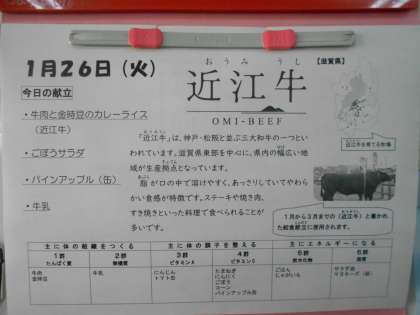 1月26日(火)
今日の献立
・牛肉と金時豆のカレーライス
(近江牛)
・ごぼうサラダ
・パインアップル(缶)
・牛乳
おうみ うし
近江牛
OMI-BEEF
【滋賀県】
「近江牛」は、神戸・松阪と並ぶ三大和牛の一つとい
われています。滋賀県東部を中心に、県内の幅広い地
域が生産拠点となっています。
脂が口の中で溶けやすく、あっさりしていてやわら
かい食感が特徴です。ステーキや焼き肉、
すき焼きといった料理で食べられることが
多いです。
近江牛を育てる牧場
1月から3月までの「近江牛」と書かれ
た給食献立に使用されます。
主に体の組織をつくる 主に体の調子を整える 主にエネルギーになる
1群 2群 3群 4群 5群 6群
たんぱく質 無機質 ビタミンA ビタミンC 炭水化物 脂質
牛肉 牛乳 にんじん たまねぎ ごはん サラダ油
金時豆 トマト缶 にんにく じゃがいも マヨネーズ
ごぼう
コーン
パインアップル缶